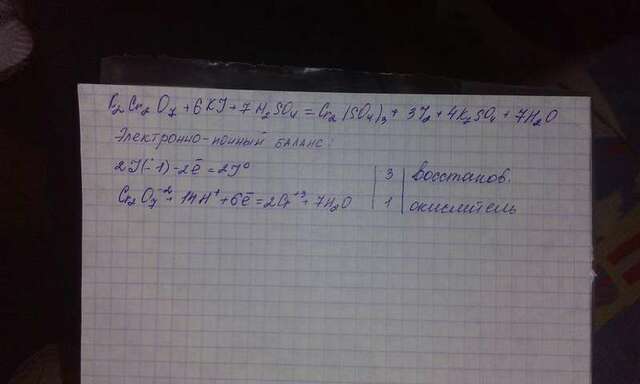 K₂Cr₂O₇ + 6KJ + 7H₂SO₄ = Cr₂(SO₄)₃ + 3J₂ + 4K₂SO₄ + 7H₂O
Электронно-ионный баланс:
2J(-1) - 2ē = 2J⁰ | 3 | восстанов.
Cr₂O₇⁻² + 14H⁺ + 6ē = 2Cr⁺³ + 7H₂O | 1 | окислитель